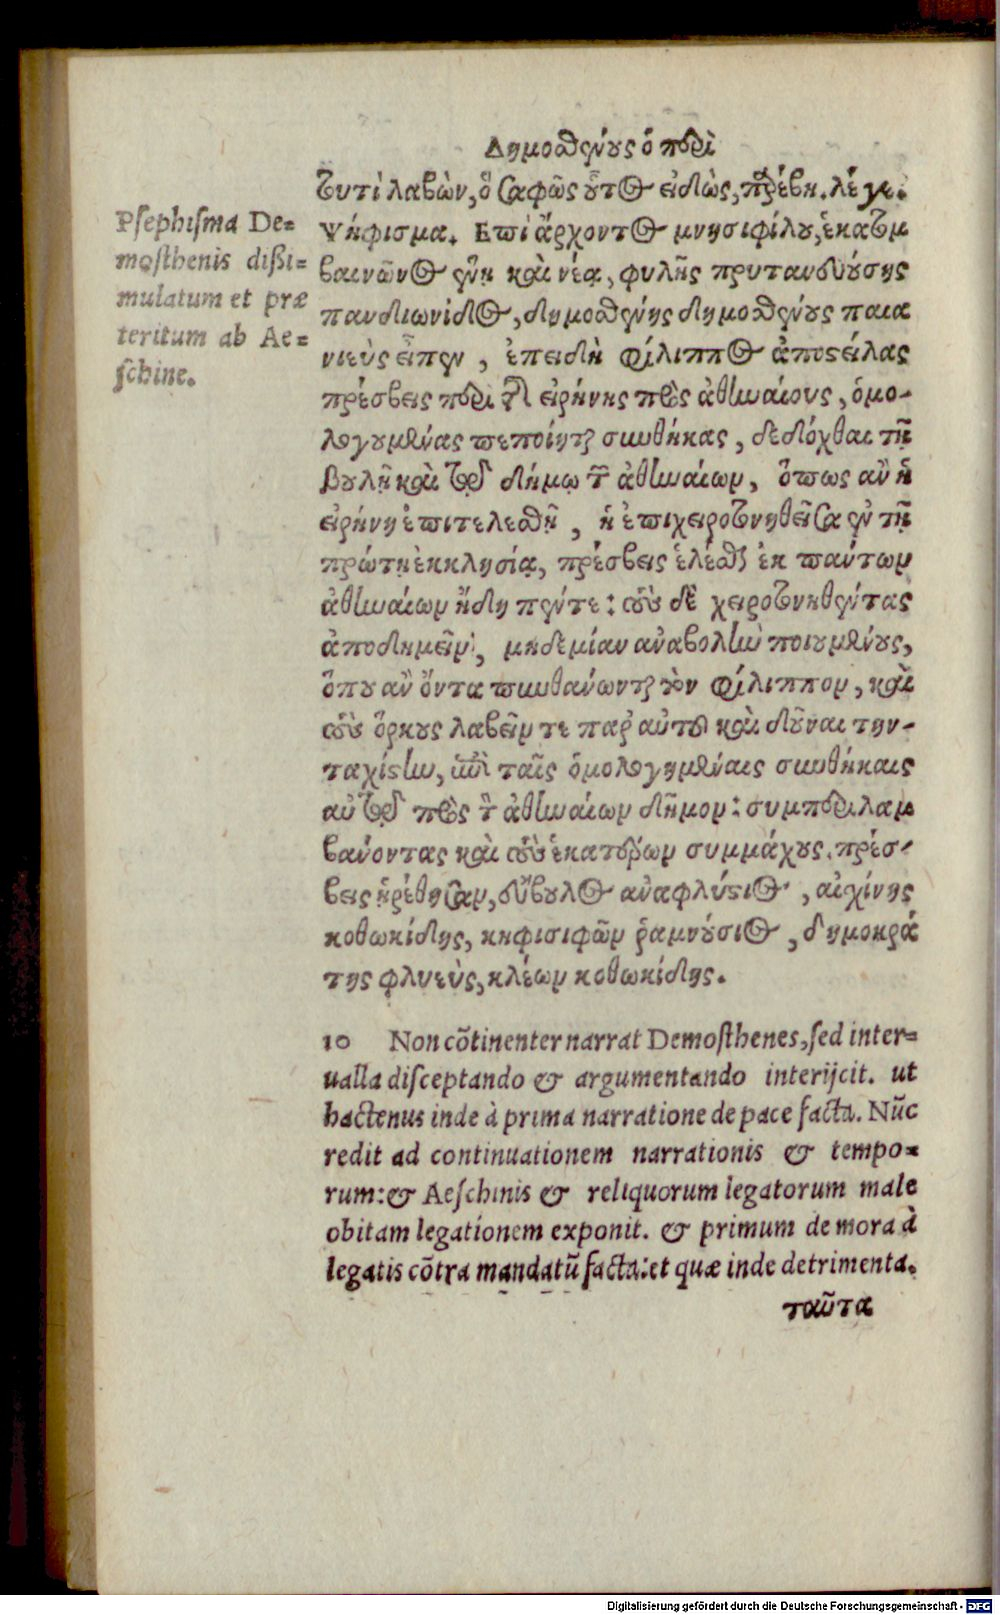 Δημοσθένους ὁ περὶ
τουτὶ λαβὼν, ὃ σαφῶς οὗτος εἰδὼς, παρέβη. λέγε.
Ψήφισμα. Επὶ ἄρχοντος μνησιφίλου, ἑκατομ
βαιῶνος ἕνῃ καὶ νέᾳ, φυλῆς πρυτανευούσης
πανδιωνίδος, δημοσθένης δημοσθένους παια
νιεὺς εἶπεν, ἐπειδὴ φίλιππος ἀποστείλας
πρέσβεις περὶ τῆς εἰρήνης πρὸς ἀθηναίους, ὁμο-
λογουμένας πεποίηται συνθήκας, δεδόχθαι τῇ
βουλῇ καὶ τῷ δήμῳ τῶν ἀθηναίων, ὅπως ἂν ἡ
εἰρήνη ἐπιτελεσθῇ, ἡ ἐπιχειροτονηθεῖσα ἐν τῇ
πρώτῃ ἐκκλησίᾳ, πρέσβεις ἑλέσθαι ἐκ πάντων
ἀθηναίων ἤδη πέντε: τοὺς δὲ χειροτονηθέντας
ἀποδημεῖν, μηδεμίαν ἀναβολὴν ποιουμένους,
ὅπου ἂν ὄντα πυνθάνωνται τὸν φίλιππον, καὶ
τοὺς ὅρκους λαβεῖν τε παρ αὐτοῦ καὶ δοῦναι τὴν-
ταχίστην, ἐπὶ ταῖς ὁμολογημέναις συνθήκαις
αὐτῷ πρὸς τὸν ἀθηναίων δῆμον: συμπεριλαμ
βάνοντας καὶ τοὺς ἑκατέρων συμμάχους. πρέσ-
βεις ᾑρέθησαν, εὔβουλος ἀναφλύστιος, αἰσχίνης
κοθωκίδης, κηφισιφῶν ῥαμνούσιος, δημοκρά
της φλυεὺς, κλέων κοθωκίδης.
Psephisma De=
mosthenis dißi=
mulatum et præ
teritum ab Ae=
schine.
10 Non cõtinenter narrat Demosthenes, sed inter=
ualla disceptando & argumentando interijcit. ut
hactenus inde à prima narratione de pace facta. Nũc
redit ad continuationem narrationis & tempo=
rum: & Aeschinis & reliquorum legatorum male
obitam legationem exponit. & primum de mora à
legatis cõtra mandatũ facta: et quæ inde detrimenta.
ταῦτα
Digitalisierung gefördert durch die Deutsche Forschungsgemeinschaft - DFG